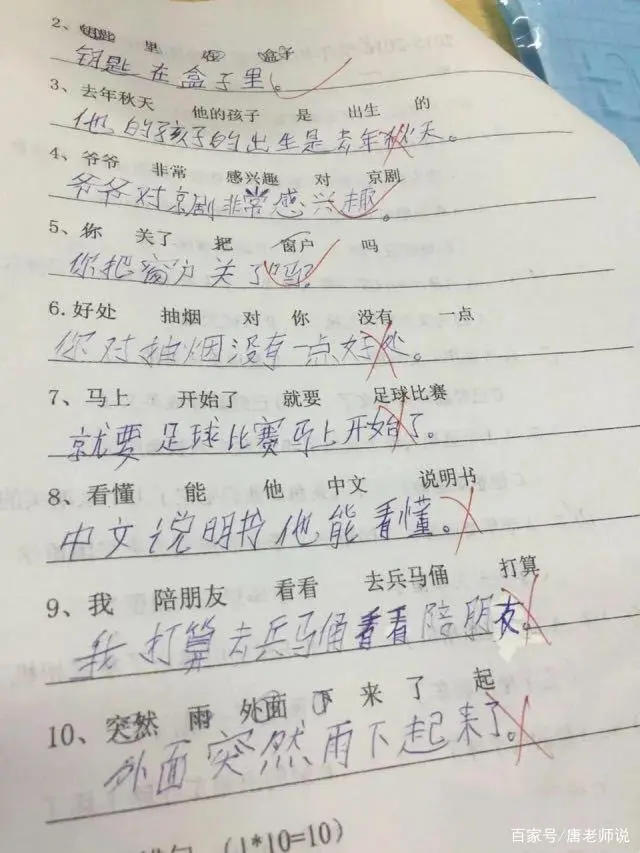 2、钥匙 里 在 盒子
钥匙在盒子里。
3、去年秋天 他的孩子 是 出生 的
他的孩子的出生是去年秋天。
4、爷爷 非常 感兴趣 对 京剧
爷爷对京剧非常感兴趣。
5、你 关了 把 窗户 吗
你把窗户关了吗。
6.好处 抽烟 对 你 没有 一点
你对抽烟没有一点好处。
7、马上 开始了 就要 足球比赛
就要足球比赛马上开始了。
8、看懂 能 他 中文 说明书
中文说明书他能看懂。
9、我 陪朋友 看看 去兵马俑 打算
我打算去兵马俑看看陪朋友。
10、突然 雨 外面 下 来 了 起
外面突然雨下起来了。
(1*10=10)
百家号/唐老师说